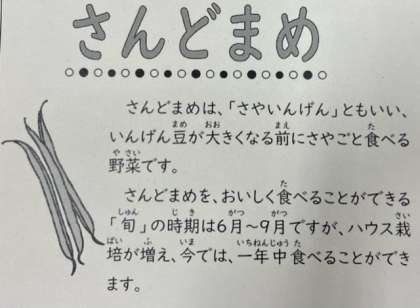 さんどまめ
さんどまめは、「さやいんげん」ともいい、
いんげん豆が大きくなる前にさやごと食べる
野菜です。
さんどまめを、おいしく食べることができる
「旬」の時期は6月~9月ですが、ハウス栽
培が増え、今では、一年中食べることができ
ます。